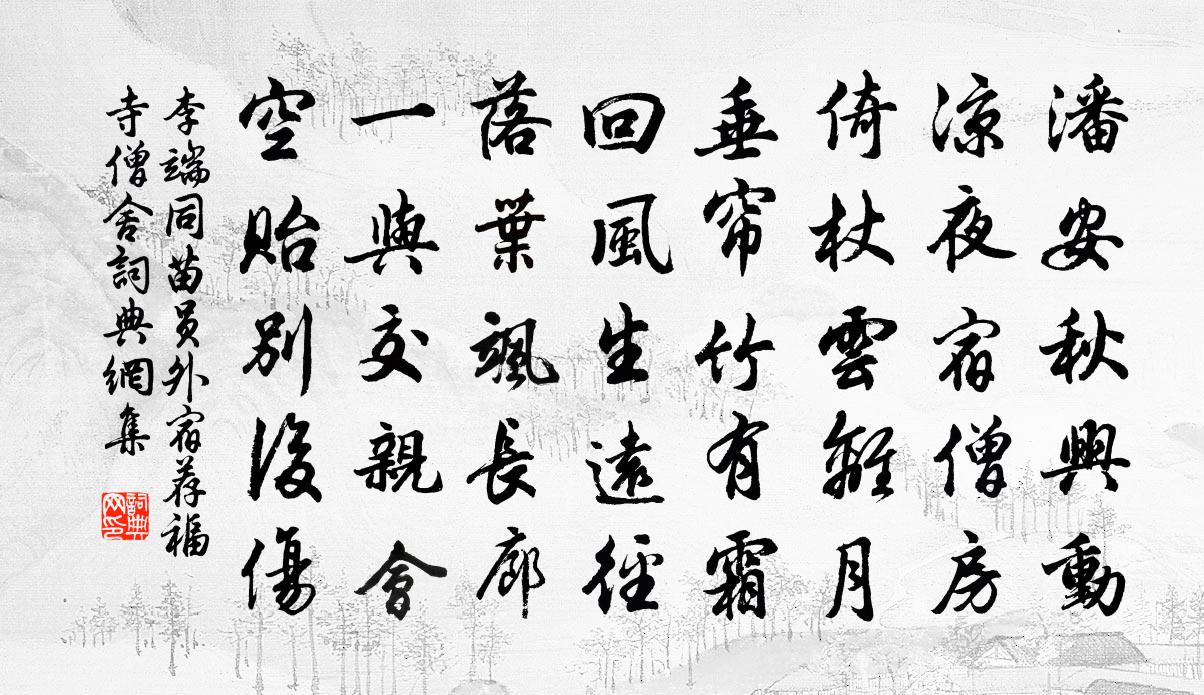 潘安秋興動
涼夜宿僧房
倚杖雲離月
垂帘竹有霜
回風生遠徑
落葉颯長廊
一與交親會
空貽別後傷
李端同苗员外宿荐福
寺僧舍詞典網集
詞典網印